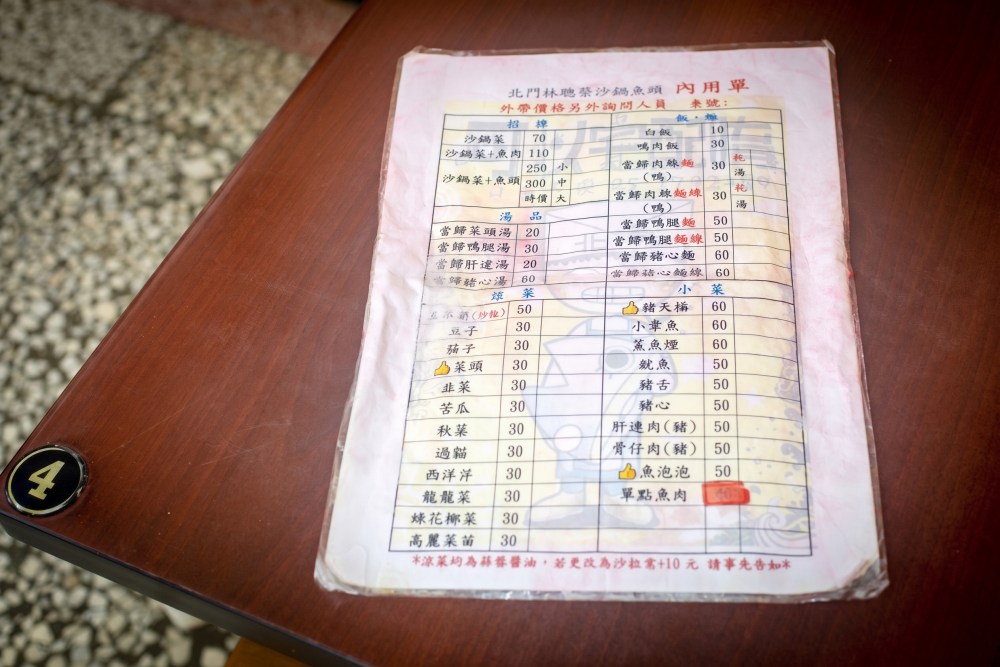 北門林聰榮沙鍋魚頭 內用單
外帶價格另外詢問人員 桌號:
招牌
沙鍋菜 70
沙鍋菜+魚肉 110
沙鍋菜+魚頭 250 小
300 中
時價 大
湯品
當歸菜頭湯 20
當歸鴨腿湯 30
當歸肝連湯 20
當歸豬心湯 60
飯.麵
白飯 10
鴨肉飯 30
當歸肉絲麵(鴨) 30 乾
湯
當歸肉絲麵線(鴨) 30 乾
湯
當歸鴨腿麵 50
當歸鴨腿麵線 50
當歸豬心麵 60
當歸豬心麵線 60
涼菜
(沙拉) 50
豆子 30
茄子 30
菜頭 30
韭菜 30
苦瓜 30
秋葵 30
過貓 30
西洋芹 30
龍龍菜 30
綠花椰菜 30
高麗菜苗 30
小菜
豬天梯 60
小章魚 60
燻魚煙 60
魷魚 50
豬舌 50
豬心 50
肝連肉(豬) 50
骨仔肉(豬) 50
魚泡泡 50
單點魚肉
*涼菜均為蒜蓉醬油，若更改為沙拉需+10元 請事先告知*
4